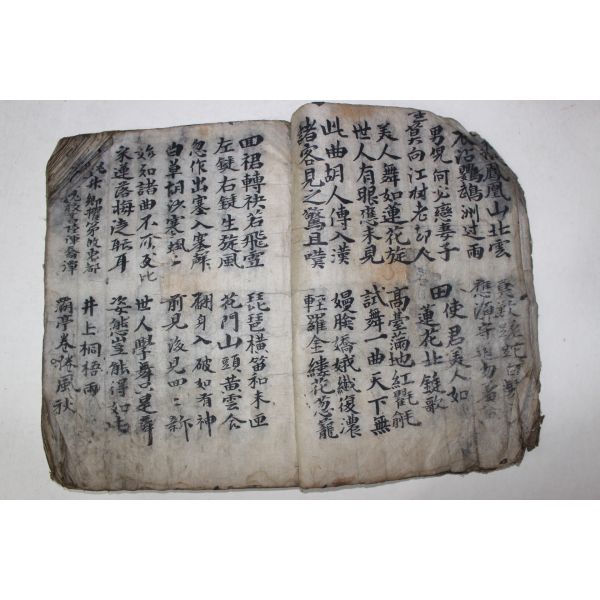 鳳凰山北雲
衣沾鸚鵡洲過雨
應須守道勿羞貧
男兒何必戀妻子
莫向江村老却人
田使君美人如
蓮花北鋋歌
美人舞如蓮花旋
世人有眼應未見
高臺滿地紅氍毹
試舞一曲天下無
此曲胡人傳入漢
諸客見之驚且嘆
嫚臉嬌娥纖復濃
輕羅金縷花葱蘢
回裙轉袂若飛雪
左鋋右鋋生旋風
琵琶橫笛和未匝
花門山頭黃雲合
忽作出塞入塞聲
白草胡沙寒颯
翻身入破如有神
前見後見回回新
始知諸曲不可比
采蓮落梅徒聒耳
世人學舞只是舞
姿態豈能得如此
井上桐梧雨
灞亭卷晚風秋